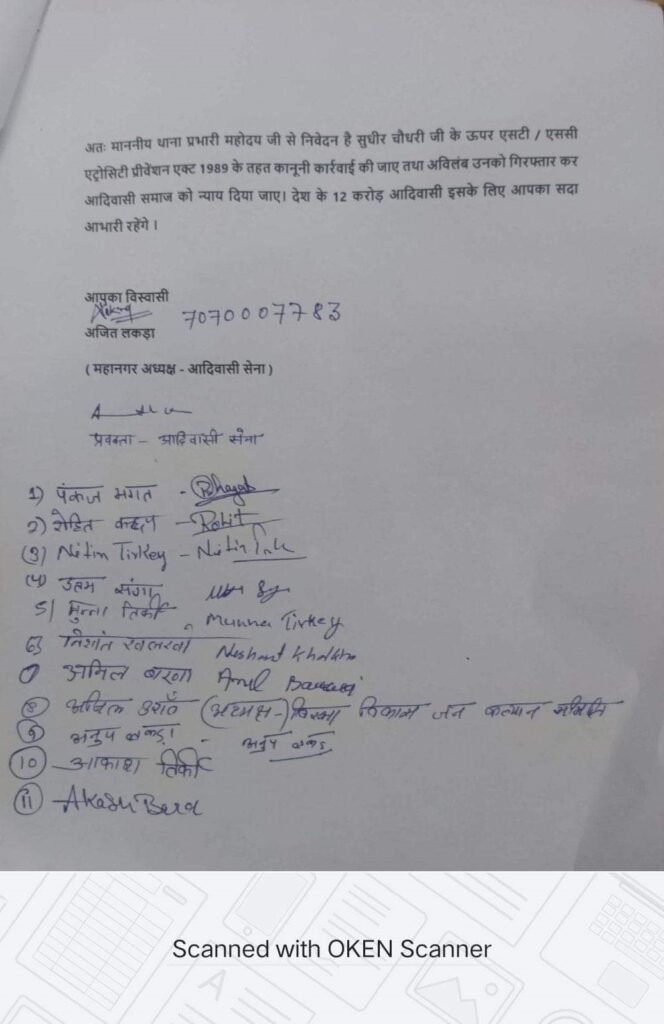 अतः माननीय थाना प्रभारी महोदय जी से निवेदन है सुधीर चौधरी जी के ऊपर एसटी / एससी
एट्रोसिटी प्रीवेंशन एक्ट 1989 के तहत कानूनी कार्रवाई की जाए तथा अविलंब उनको गिरफ्तार कर
आदिवासी समाज को न्याय दिया जाए। देश के 12 करोड़ आदिवासी इसके लिए आपका सदा
आभारी रहेंगे ।
आपका विस्वासी
7070007783
अजित लकड़ा
( महानगर अध्यक्ष - आदिवासी सेना )
प्रवक्ता - आदिवासी सेना
1) पंकज भगत - Bhagat
2) रोहित - Rohit
(3) Nitin Tirkey - Nitin
(4) उतम संगा
5) मुन्ना तिर्की Munna Tirkey
6) निशांत खलखो Nishant Khalkho
7 अनिल Anil
8 (अध्यक्ष-) विकास जन कल्याण समिति
9 अनुप लकड़ा - अनुप लकड़ा
10 आकाश तिर्की
11 Akash
Scanned with OKEN Scanner